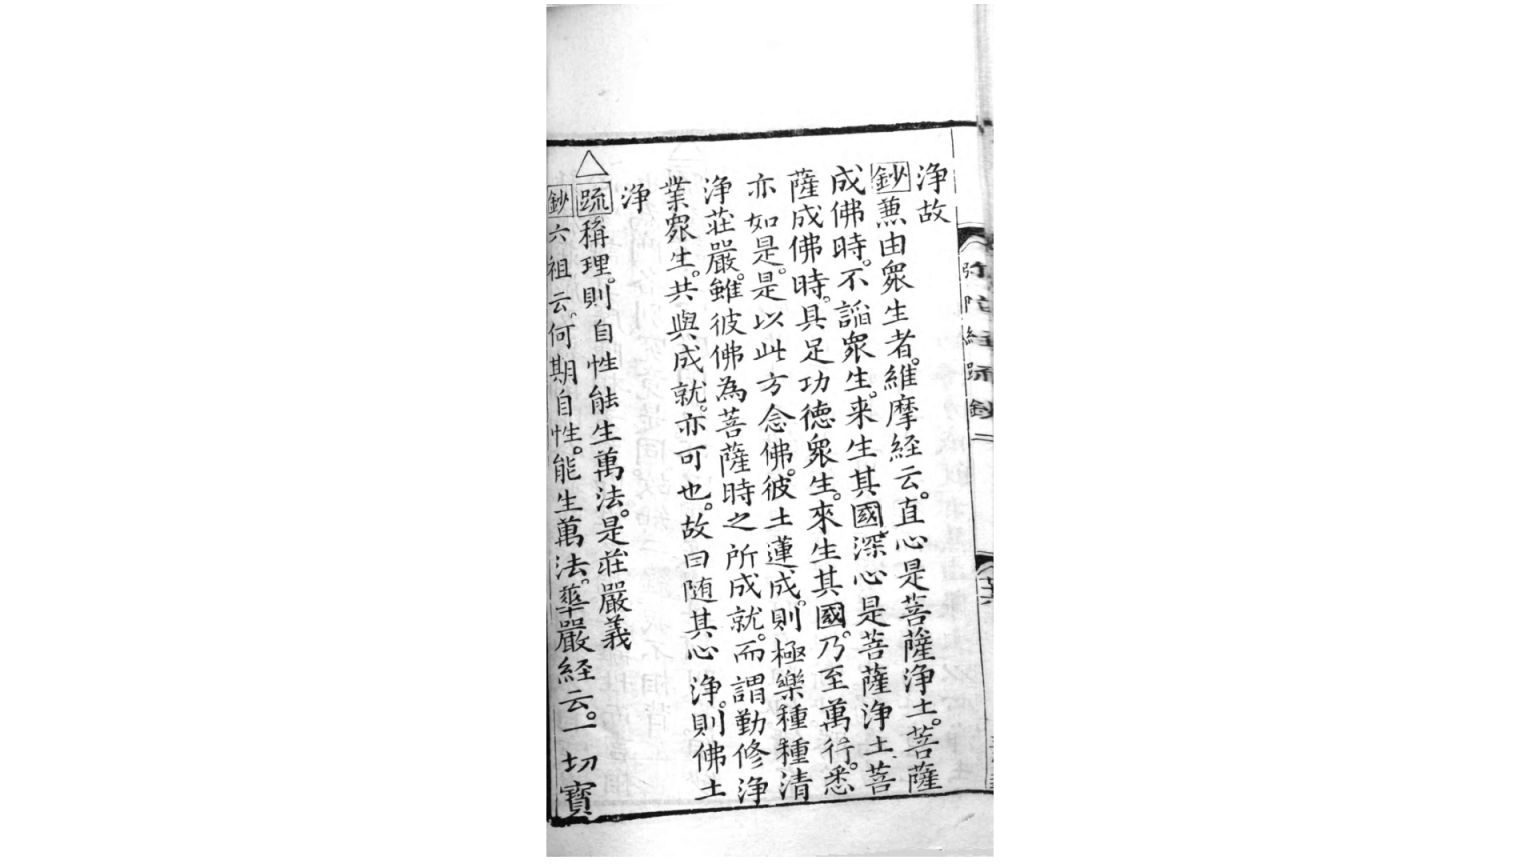 淨故
鈔兼由眾生者。維摩經云。直心是菩薩淨土。菩薩
成佛時。不諂眾生。來生其國。深心是菩薩淨土。菩
薩成佛時。具足功德眾生。來生其國。乃至萬行。悉
亦如是。是以此方念佛。彼土蓮成。則極樂種種清
淨莊嚴。雖彼佛為菩薩時之所成就。而謂勤修淨
業眾生。共與成就。亦可也。故曰隨其心淨。則佛土
淨
△疏稱理。則自性能生萬法。是莊嚴義
鈔六祖云。何期自性。能生萬法。華嚴經云。一切寶